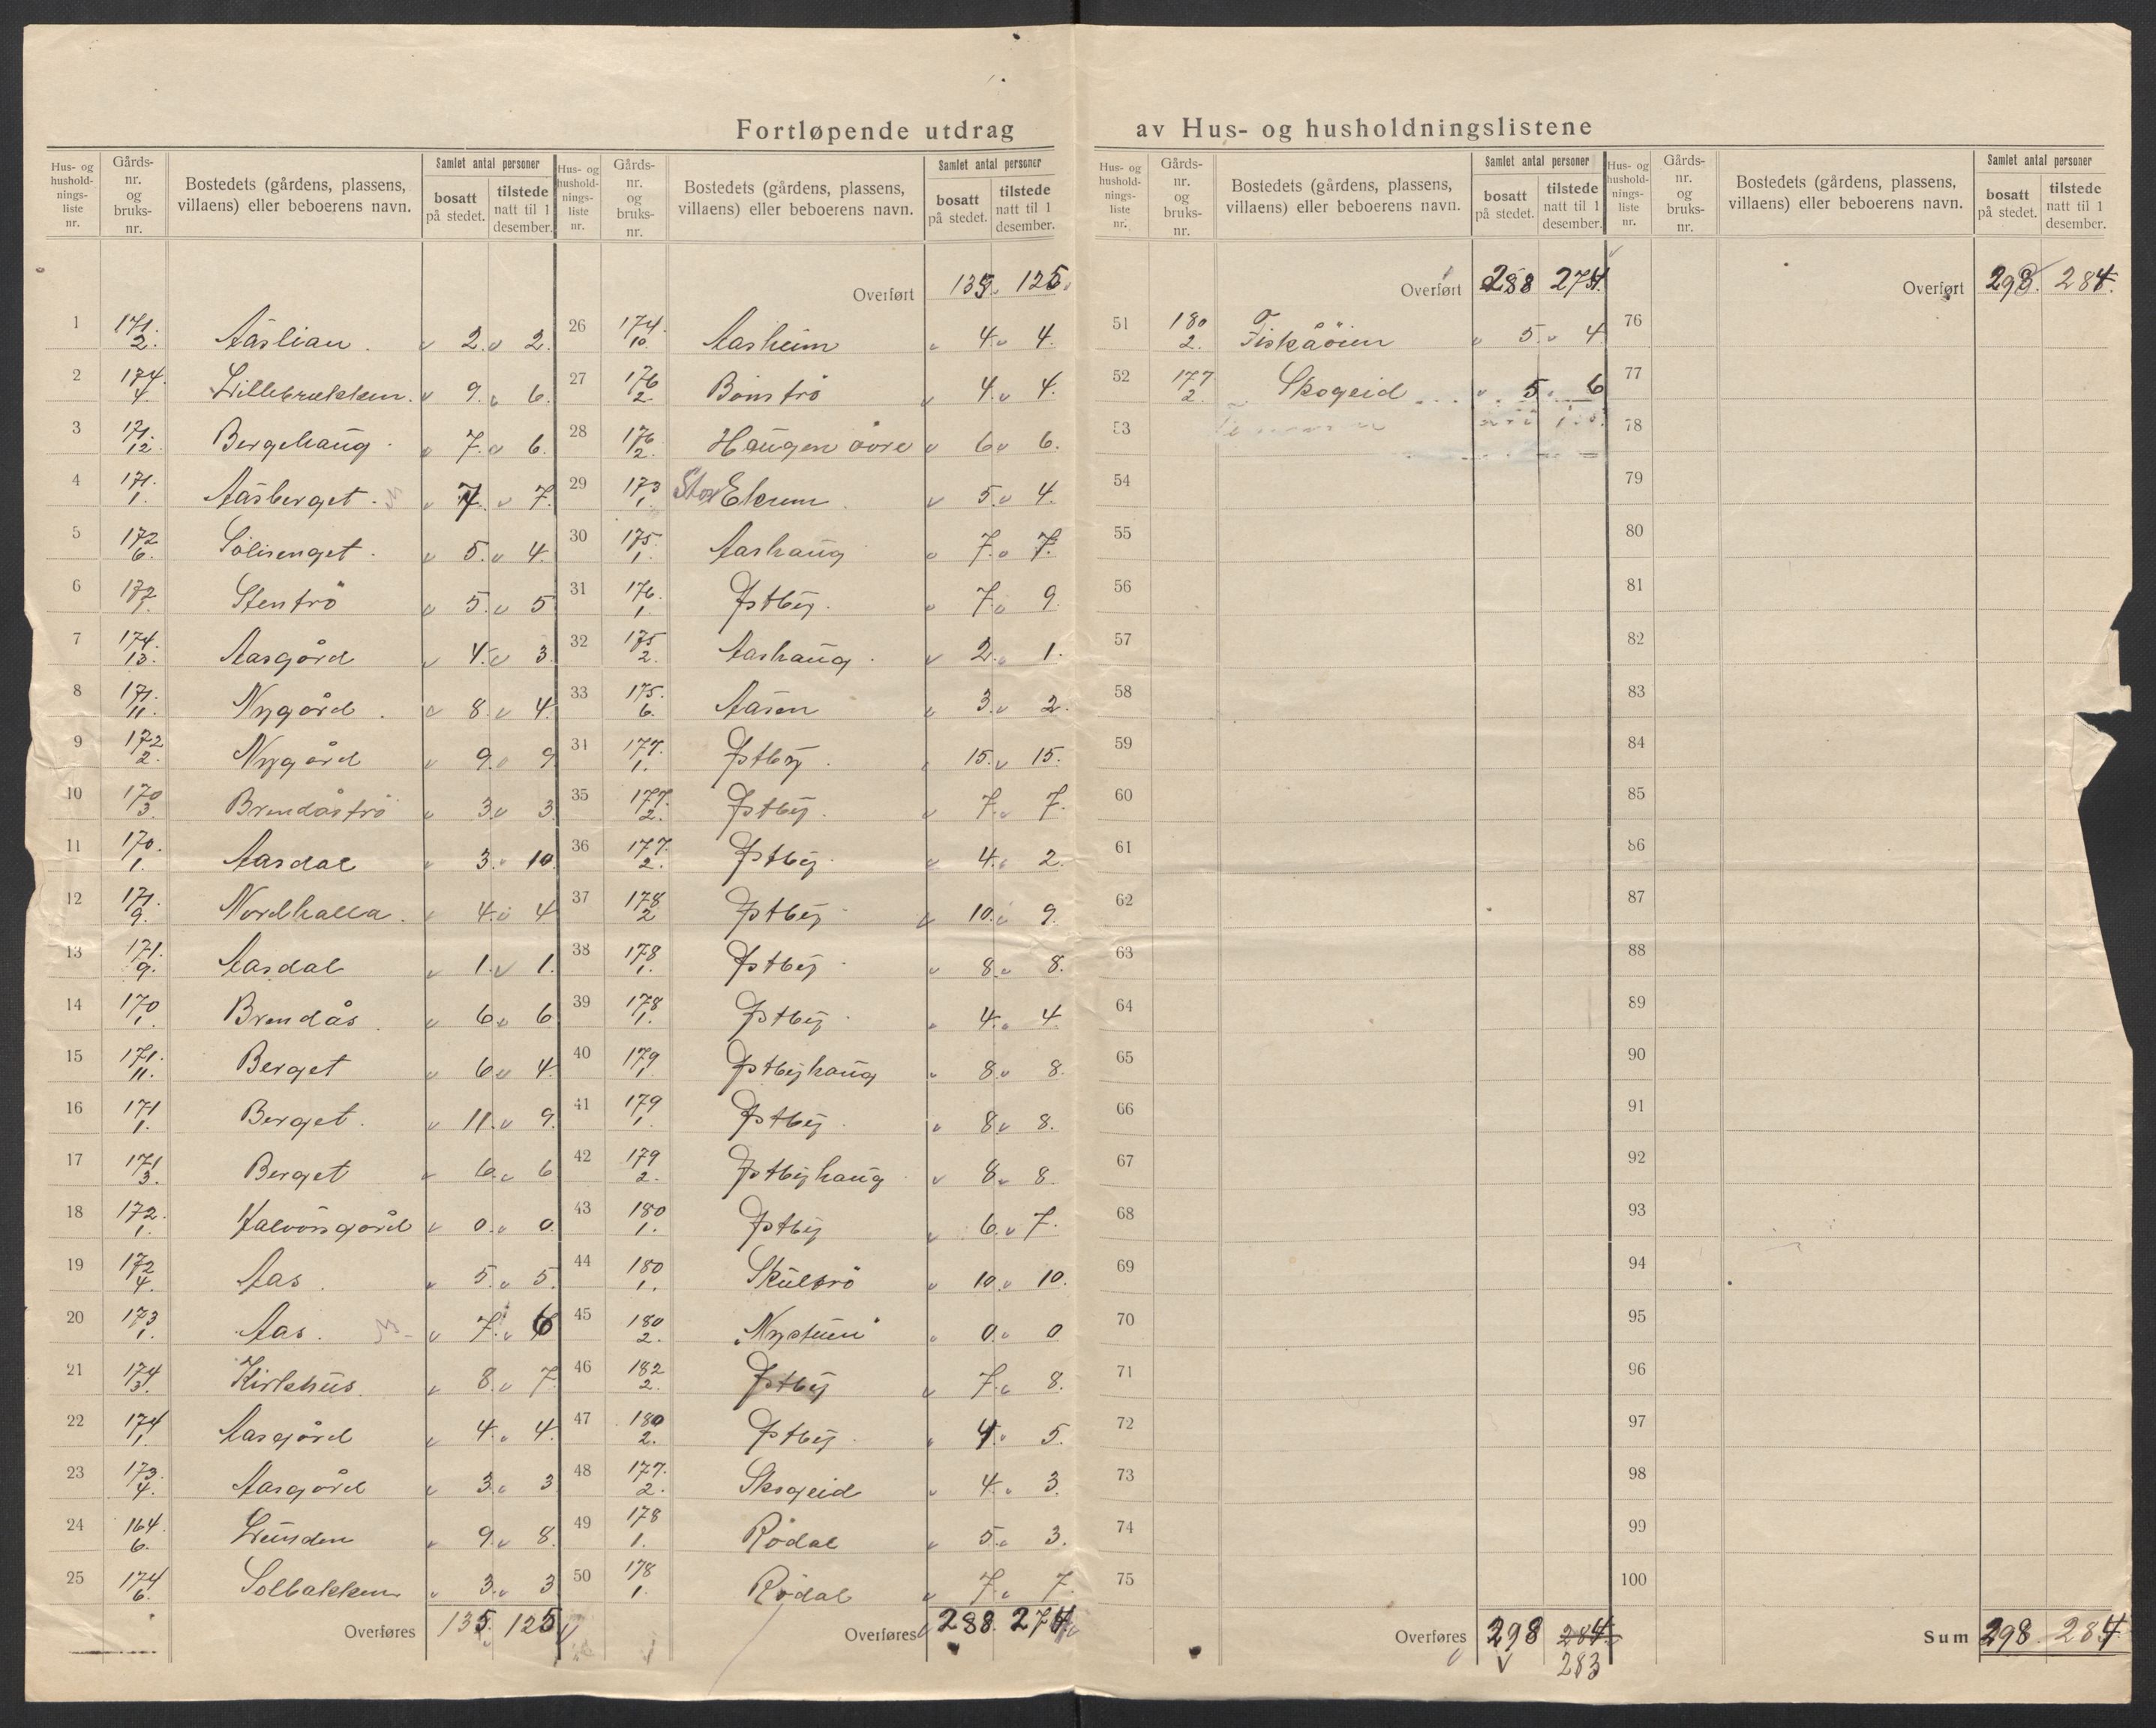 Fortløpende utdrag av Hus- og husholdningslistene
Hus- og husholdnings-liste nr. | Gårds-nr. og bruks-nr. | Bostedets (gårdens, plassens, villaens) eller beboerens navn. | Samlet antal personer bosatt på stedet. | tilstede natt til 1 desember.
1 171. 2. Aaslian. 2. 2.
2 174. 4. Lillebrækken. 9. 6.
3 171 12. Bergehaug. 7. 6.
4 171. 1. Aasberget. 7. 7.
5 172 6. Solisenget. 5. 4.
6 172 1. Stentrö 5. 5
7 174. 13. Aasgård 4. 3.
8 171. 11. Nygård. 8. 4.
9 172 2. Nygård 9. 9
10 170 3. Brendåströ 3. 3.
11 170. 1. Aasdal 3. 10.
12 171. 9. Nordhalla. 4. 4
13 171. 9. Aasdal 1. 1.
14 170 1. Brendås. 6. 6
15 171. 11. Berget 6. 4.
16 171 1. Berget. 11. 9.
17 171 3. Berget 6. 6
18 172. 1. Halvorsgård 0. 0
19 172 4. Aas. 5. 5.
20 173 1. Aas. 7. 6
21 174 3. Kirkhus. 8. 7
22 174 1. Aasgård 4. 4.
23 173. 4. Aasgård 3. 3
24 164. 6. Lunden 9. 8.
25 174 6. Solbakken 3. 3
Overføres 135. 125
Hus- og husholdnings-liste nr. | Gårds-nr. og bruks-nr. | Bostedets (gårdens, plassens, villaens) eller beboerens navn. | Samlet antal personer bosatt på stedet. | tilstede natt til 1 desember.
Overført 135. 125.
26 174. 10. Aasheim 4. 4.
27 176 2 Bönströ 4. 4.
28 176 2. Haugen övre 6. 6.
29 173 1. Stor Ekrum 5. 4.
30 175. 1. Aashaug 7. 7.
31 176. 1. Östby. 7. 9.
32 175 2. Aashaug. 2. 1.
33 175. 6. Aasen 3. 2.
34 177. 1. Östby. 15. 15.
35 177. 2. Östby. 7. 7.
36 177. 2. Östby. 4. 2.
37 178 2 Östby. 10. 9.
38 178 1. Östby. 8. 8.
39 178 1. Östby. 4. 4
40 179 1 Östbyhaug 8. 8.
41 179 1. Östby. 8. 8.
42 179 2. Östbyhaug. 8. 8.
43 180 1. Östby 6. 7.
44 180 1. Skulsrö 10. 10.
45 180 2. "Nystuen" 0. 0
46 182 2. Östby 7. 8.
47 180 2. Östby. 4. 5.
48 177. 2. Skogeid 4. 3.
49 178 1. Rödal 5. 3.
50 178 1. Rödal 7. 7.
Overføres 288. 274.
Hus- og husholdnings-liste nr. | Gårds-nr. og bruks-nr. | Bostedets (gårdens, plassens, villaens) eller beboerens navn. | Samlet antal personer bosatt på stedet. | tilstede natt til 1 desember.
Overført 288 274.
51 180 2. Fiskåöien 5. 4.
52 177 2. Skogeid 5. 6
53
54
55
56
57
58
59
60
61
62
63
64
65
66
67
68
69
70
71
72
73
74
75
Overføres 298 284
283
Hus- og husholdnings-liste nr. | Gårds-nr. og bruks-nr. | Bostedets (gårdens, plassens, villaens) eller beboerens navn. | Samlet antal personer bosatt på stedet. | tilstede natt til 1 desember.
Overført 298. 284.
76
77
78
79
80
81
82
83
84
85
86
87
88
89
90
91
92
93
94
95
96
97
98
99
100
Sum 298. 284